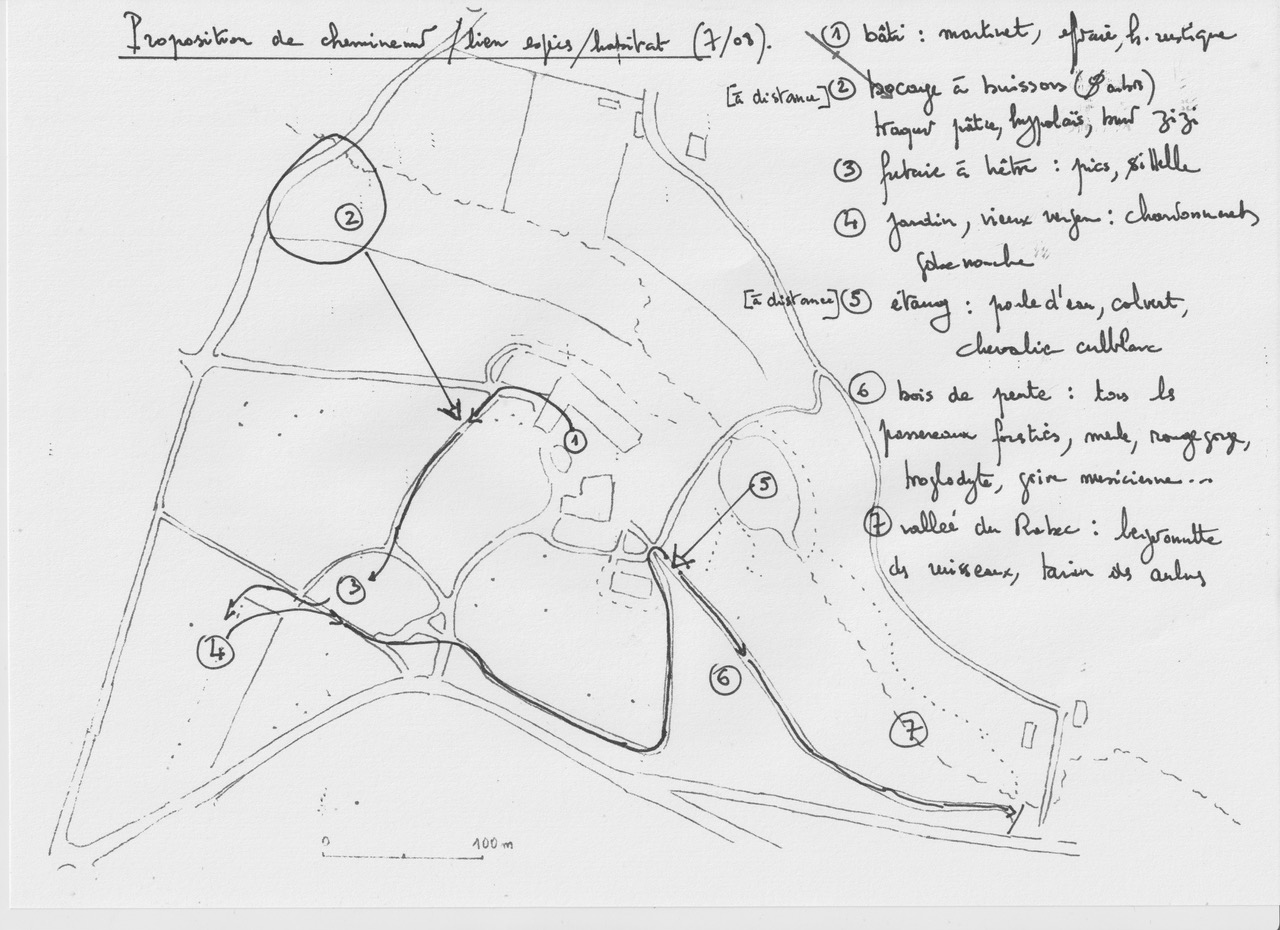 Proposition de cheminemt / lien espèces / habitat (7/08).
① bâti : martinet, effraie, h. rustique
[à distance] ② bocage à buissons (
traquet pâtre, hypolaïs, bruant zizi
③ futaie à hêtre : pics, sittelle
④ jardin, vieux verger : chardonnerets
gobemouche
[à distance] ⑤ étang : poule d'eau, colvert,
chevalier culblanc
⑥ bois de pente : tous les
passereaux forestiers, merle, rouge gorge,
troglodyte, grive musicienne...
⑦ vallée du Robec : bergeronnette
des ruisseaux, tarin des aulnes
②
①
⑤
③
④
⑥
⑦
0 100 m